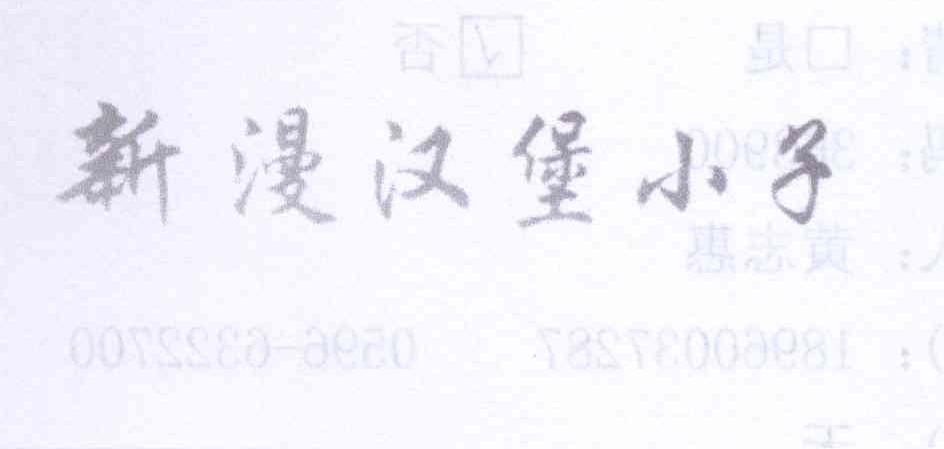 新漫汉堡小子